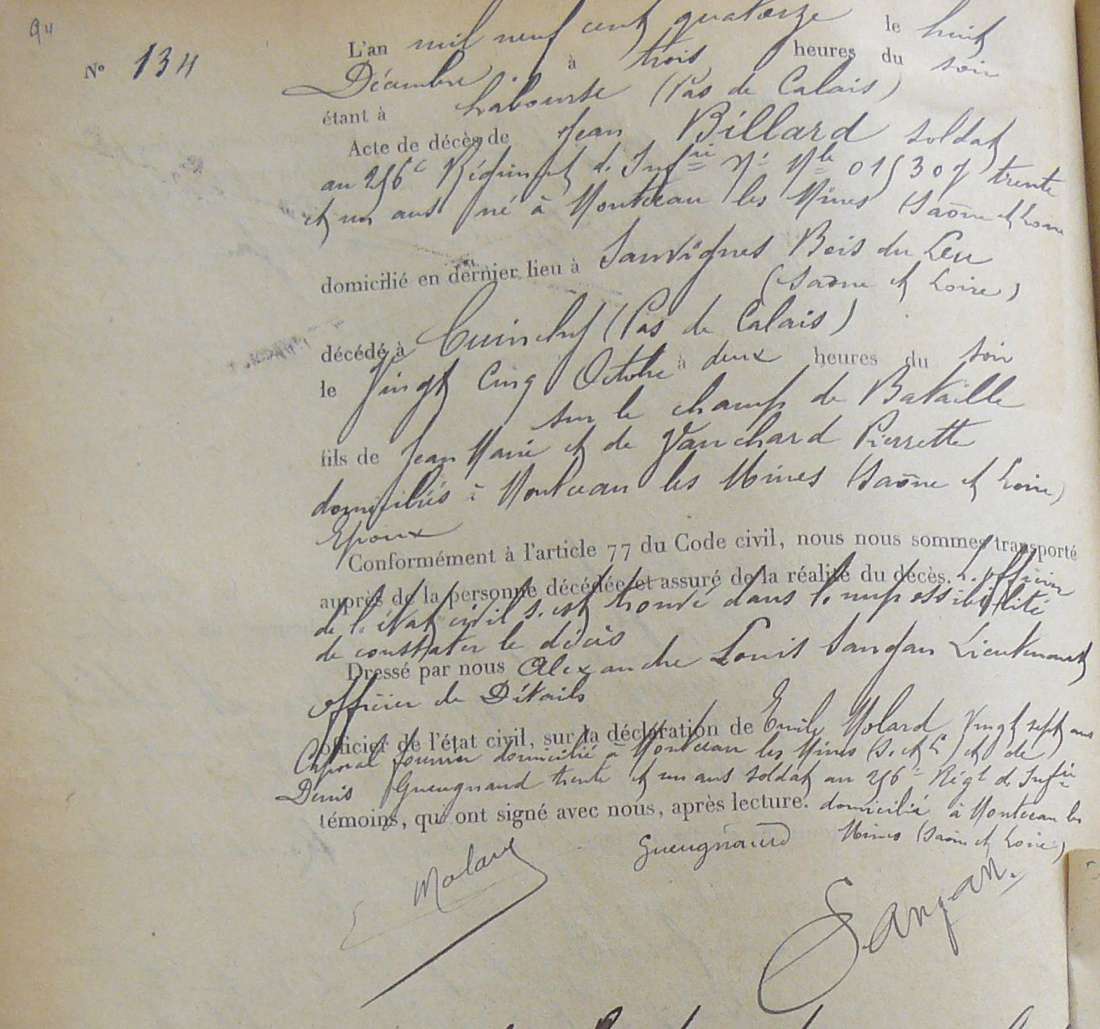 94
N° 134
L'an mil neuf cent quatorze le huit
Décembre à trois heures du soir
étant à Labourse (Pas de Calais)
Acte de décès de Jean Billard soldat
au 256e Régiment d'Infrie Nº Mle 015307 trente
et un ans né à Montceau les Mines (Saône et Loire
domicilié en dernier lieu à Sanvignes Bois du Leu
(Saône et Loire)
décédé à Cuinchy (Pas de Calais)
le Vingt Cinq Octobre à deux heures du soir
sur le champ de Bataille
fils de Jean Marie et de Vanchard Pierrette
domiciliés à Montceau les Mines (Saône et Loire)
Epoux
Conformément à l'article 77 du Code civil, nous nous sommes transporté
auprès de la personne décédée et assuré de la réalité du décès. L'officier
de l'état civil s'est trouvé dans l'impossibilité
de constater le décès
Dressé par nous Alexandre Louis Sangan Lieutenant
officier de Détails
officier de l'état civil, sur la déclaration de Emile Molard Vingt sept ans
Caporal fourrier domicilié à Montceau les Mines (S. et L) et de
Denis Gueugnaud trente et un ans soldat au 256e Régt d'Infrie
témoins, qui ont signé avec nous, après lecture. domicilié à Montceau les
Mines (Saône et Loire)
E Molard
Gueugnaud
Sangan.